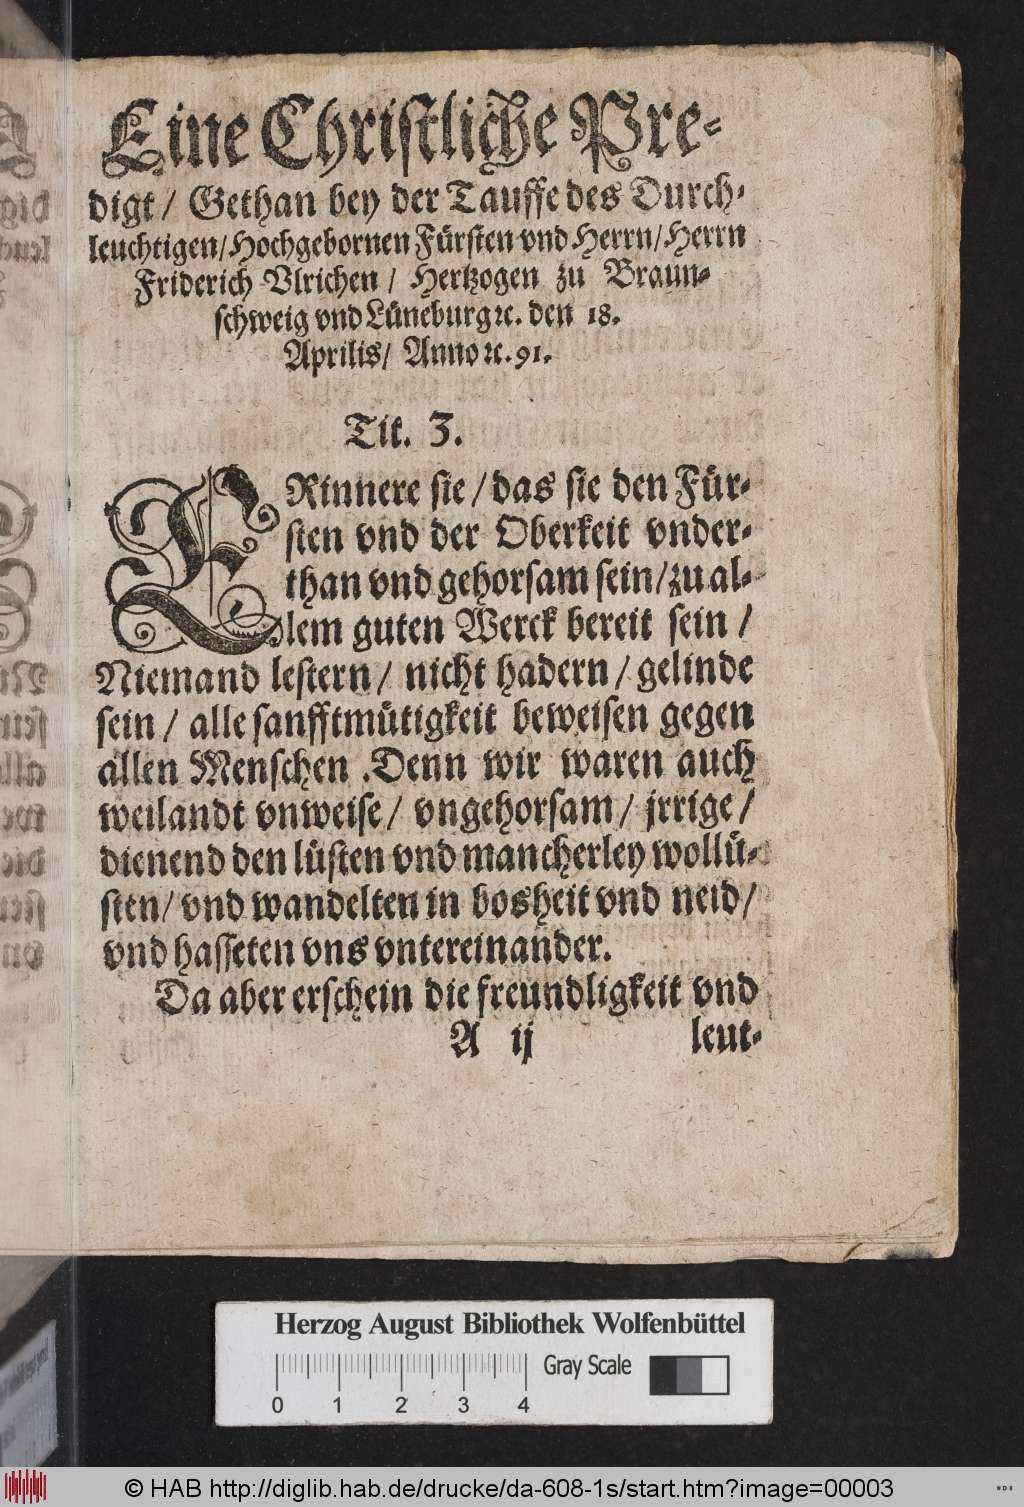 Eine Christliche Pre-
digt / Gethan bey der Tauffe des Durch-
leuchtigen / Hochgebornen Fürsten vnd Herrn / Herrn
Friderich Vlrichen / Hertzogen zu Braun-
schweig vnd Lüneburg ꝛc. den 18.
Aprilis / Anno ꝛc. 91.
Tit. 3.
ERinnere sie / das sie den Für-
sten vnd der Oberkeit vnder-
than vnd gehorsam sein / zu al-
lem guten Werck bereit sein /
Niemand lestern / nicht hadern / gelinde
sein / alle sanfftmütigkeit beweisen gegen
allen Menschen . Denn wir waren auch
weilandt vnweise / vngehorsam / jrrige /
dienend den lüsten vnd mancherley wollü-
sten / vnd wandelten in bosheit vnd neid /
vnd hasseten vns vntereinander.
Da aber erschein die freundligkeit vnd
A ij leut-
Herzog August Bibliothek Wolfenbüttel
Gray Scale
0 1 2 3 4
© HAB http://diglib.hab.de/drucke/da-608-1s/start.htm?image=00003